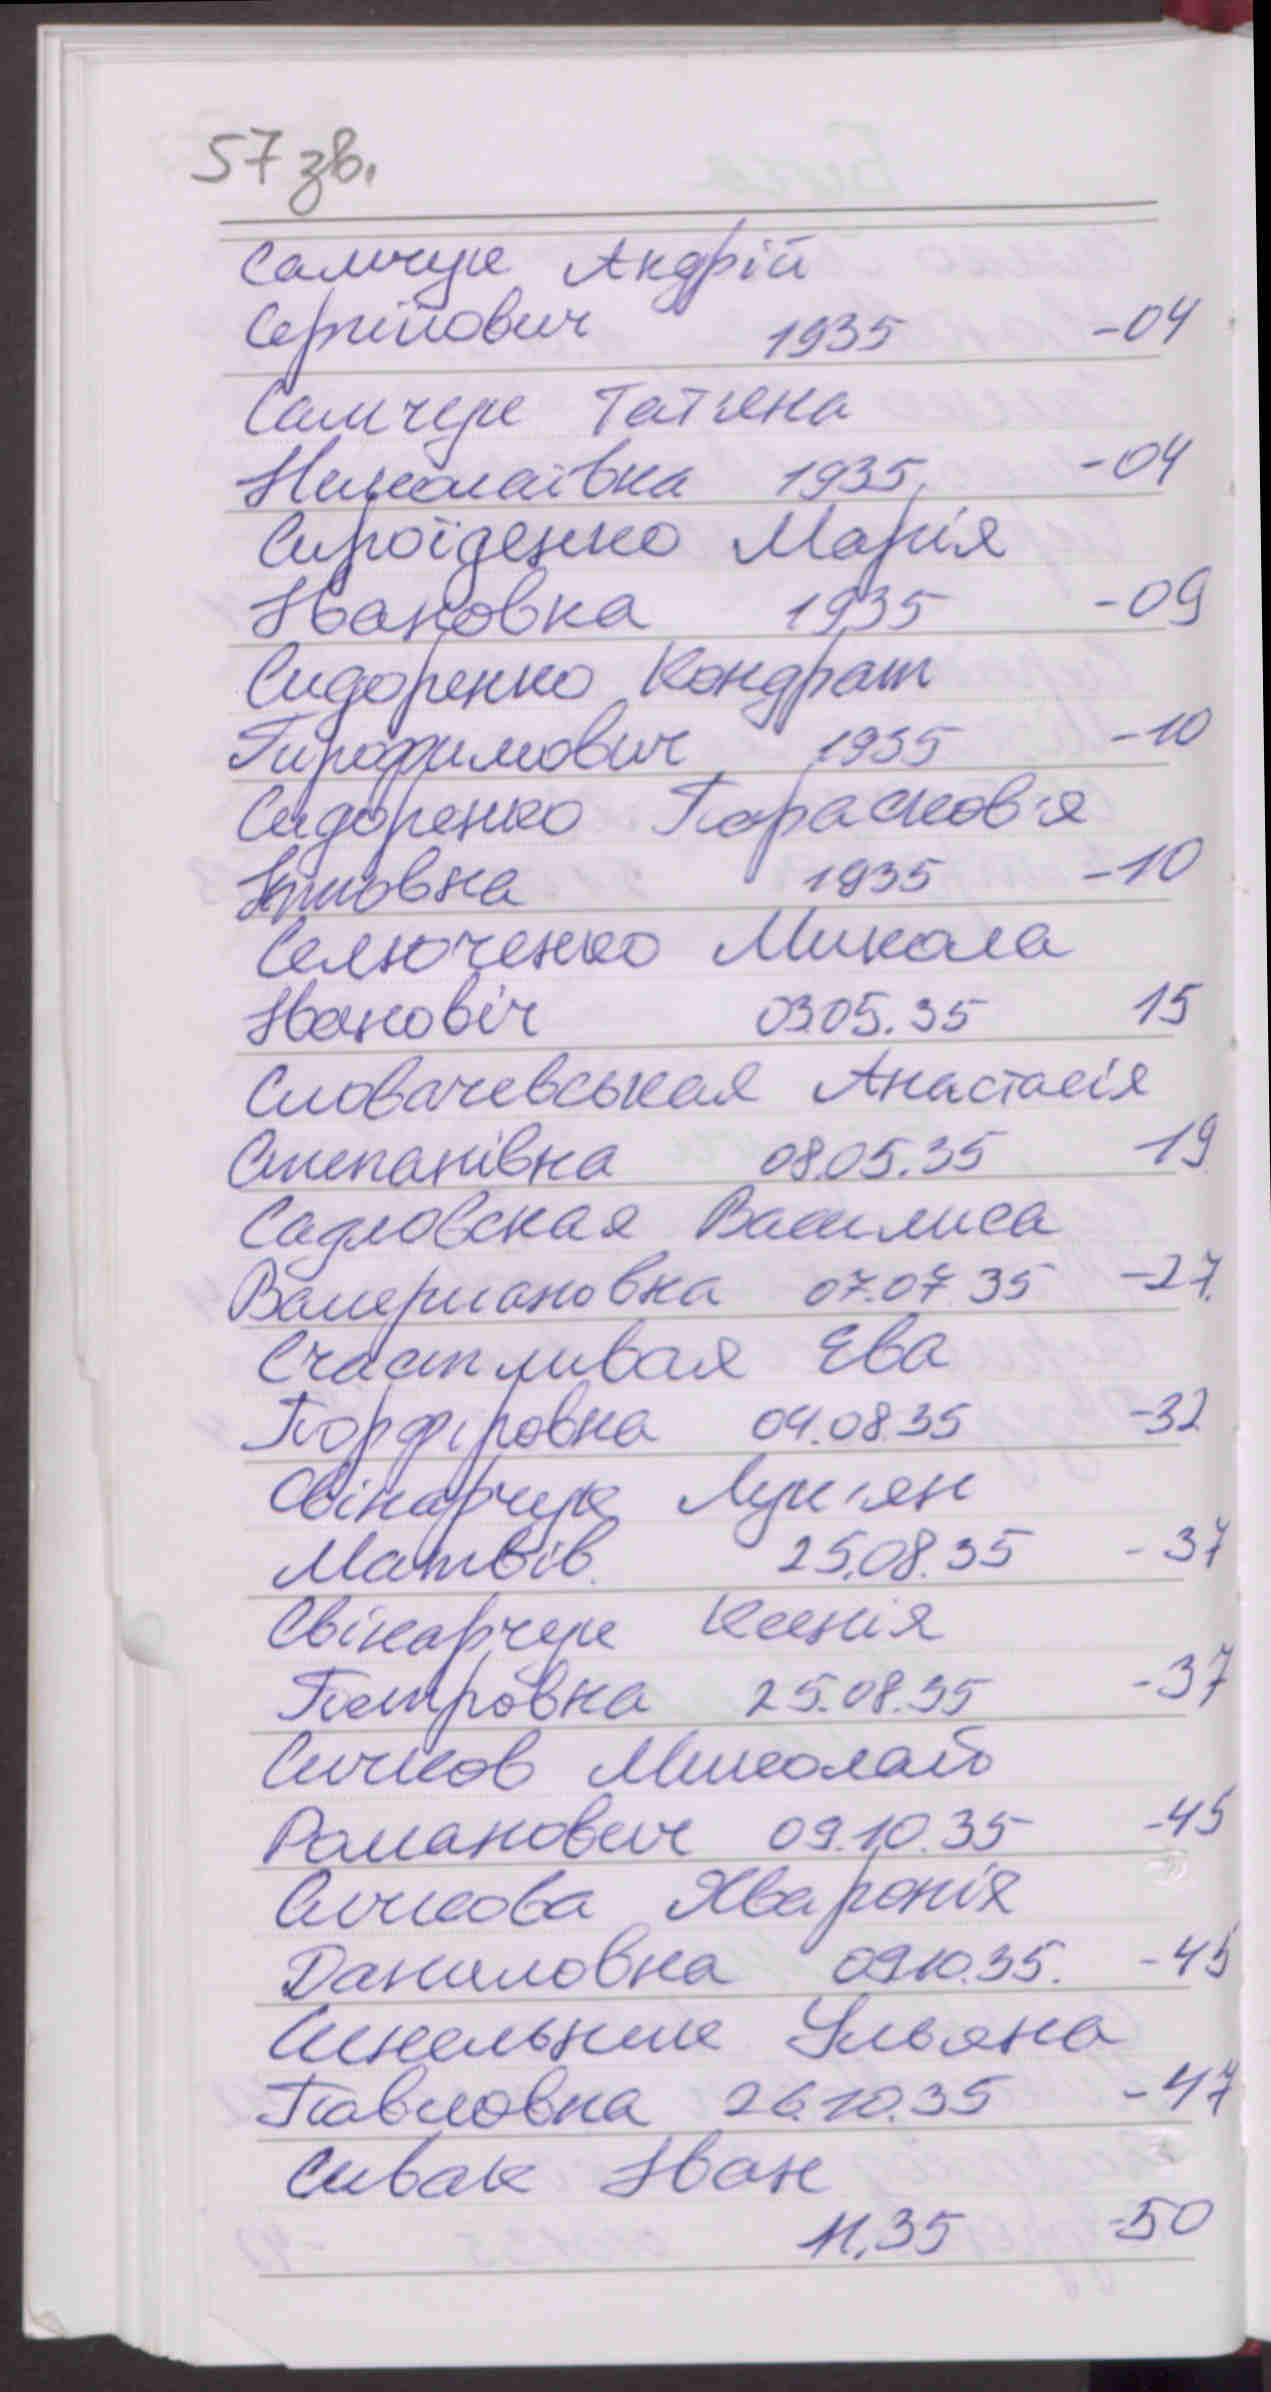 57 зв.
Самчук Андрій
Сергійович 1935 -04
Самчук Татʼяна
Николаівна 1935 -04
Сироїденко Марія
Івановна 1935 -09
Сидоренко Кондрат
Тирофимович 1935 -10
Сидоренко Парасковʼя
1935 -10
Селюченко Микола
Івановіч 03.05.35 15
Словачевськая Анастасія
Степанівна 08.05.35 19
Садловская Василиса
Валериановна 07.07.35 -27
Счастливая Ева
Порфіровна 04.08.35 -32
Свінарчук Лукʼян
Матвів. 25.08.35 -37
Свінарчук Ксенія
Петровна 25.08.35 -37
Сичков Миколай
Романович 09.10.35 -45
Сичкова Хваронія
Даниловна 09.10.35. -45
Синельник Ульяна
Павловна 26.10.35 -47
Сивак Іван
11.35 -50